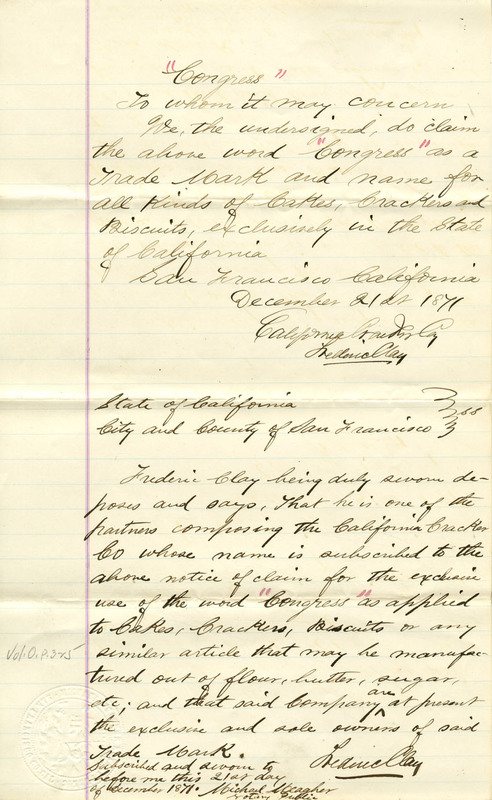 "Congress"
To whom it may concern
We, the undersigned, do claim
the above word "Congress" as a
Trade Mark and name for
all Kinds of Cakes, Crackers and
Biscuits, exclusively in the State
of California
San Francisco California
December 21st 1871
California Cracker Co
Frederic Clay
State of California
City and County of San Francisco } ss
Frederic Clay being duly sworn de-
poses and says, That he is one of the
partners composing the California Cracker
Co whose name is subscribed to the
above notice of claim for the exclusive
use of the word "Congress" as applied
to Cakes, Crackers, Biscuits or any
similar article that may be manufac-
tured out of flour, butter, sugar,
etc; and that said Company are at present
the exclusive and sole owners of said
Trade Mark.
Frederic Clay
Subscribed and sworn to
before me this 21st day
of December 1871. Michael Meagher
Notary Public
Vol. O. P. 325